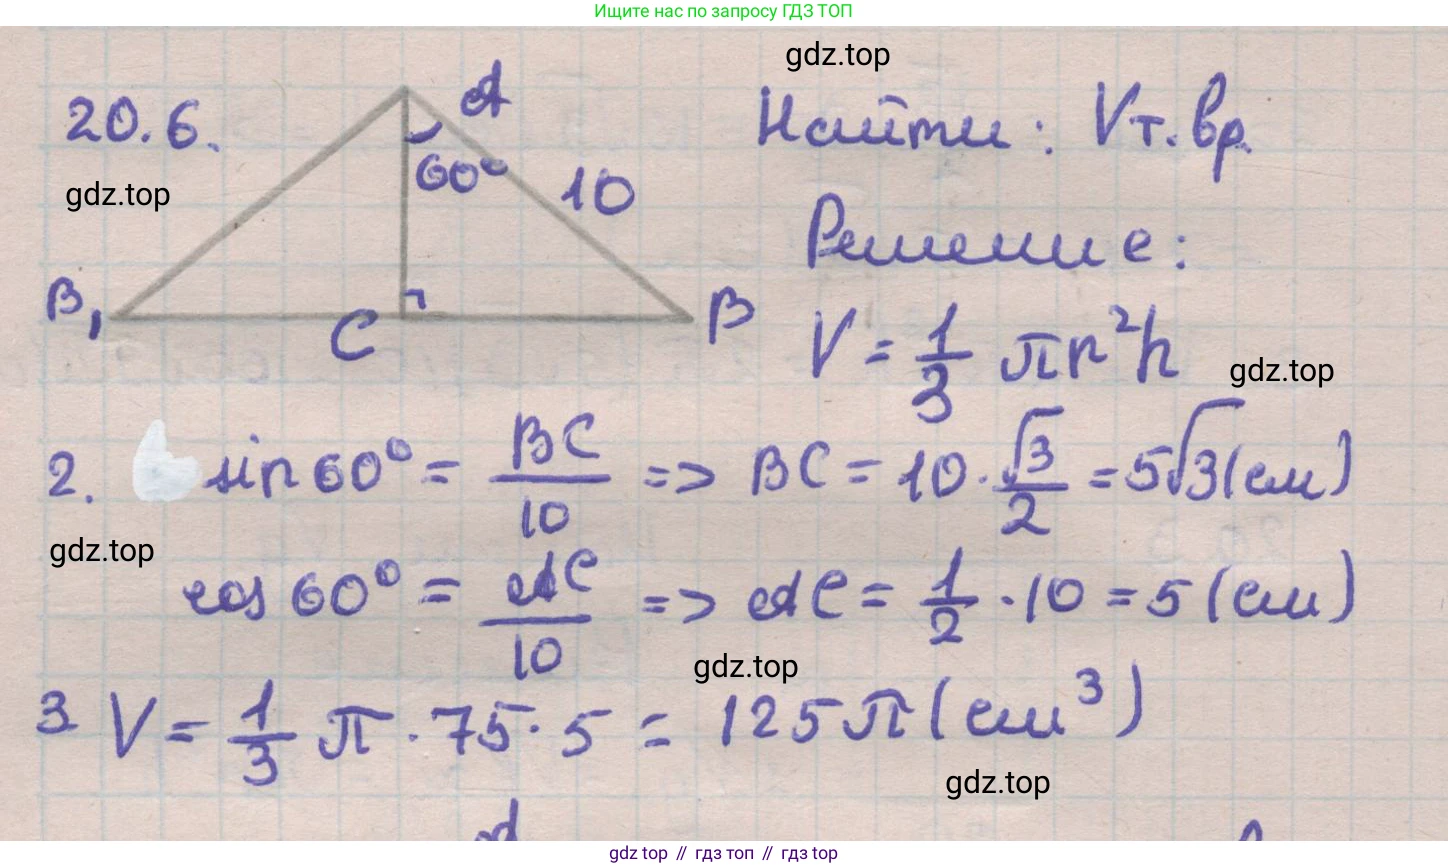 Ищите нас по запросу ГДЗ ТОП
gdz.top
20.6.
A
60°
10
B₁
C
B
gdz.top
Найти: Vт.вр.
Решение:
V = 1/3 πr²h
gdz.top
2. sin 60° = BC/10 => BC = 10 · √3/2 = 5√3 (см)
gdz.top
cos 60° = AC/10 => AC = 1/2 · 10 = 5 (см)
gdz.top
3 V = 1/3 π · 75 · 5 = 125π (см³)
gdz.top
gdz top // гдз топ // гдз top